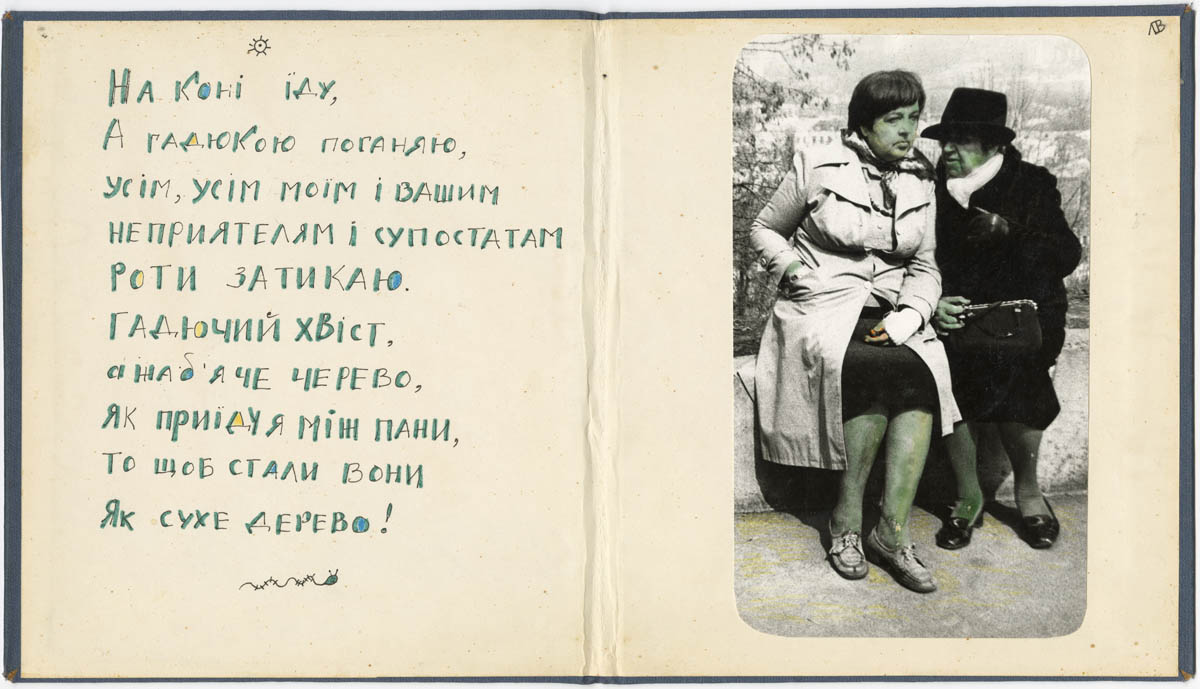 На коні їду,
А гадюкою поганяю,
усім, усім моїм і вашим
неприятелям і супостатам
роти затикаю.
Гадючий хвіст,
а жаб'яче черево,
як приїду я між пани,
то щоб стали вони
як сухе дерево!
ЛВ